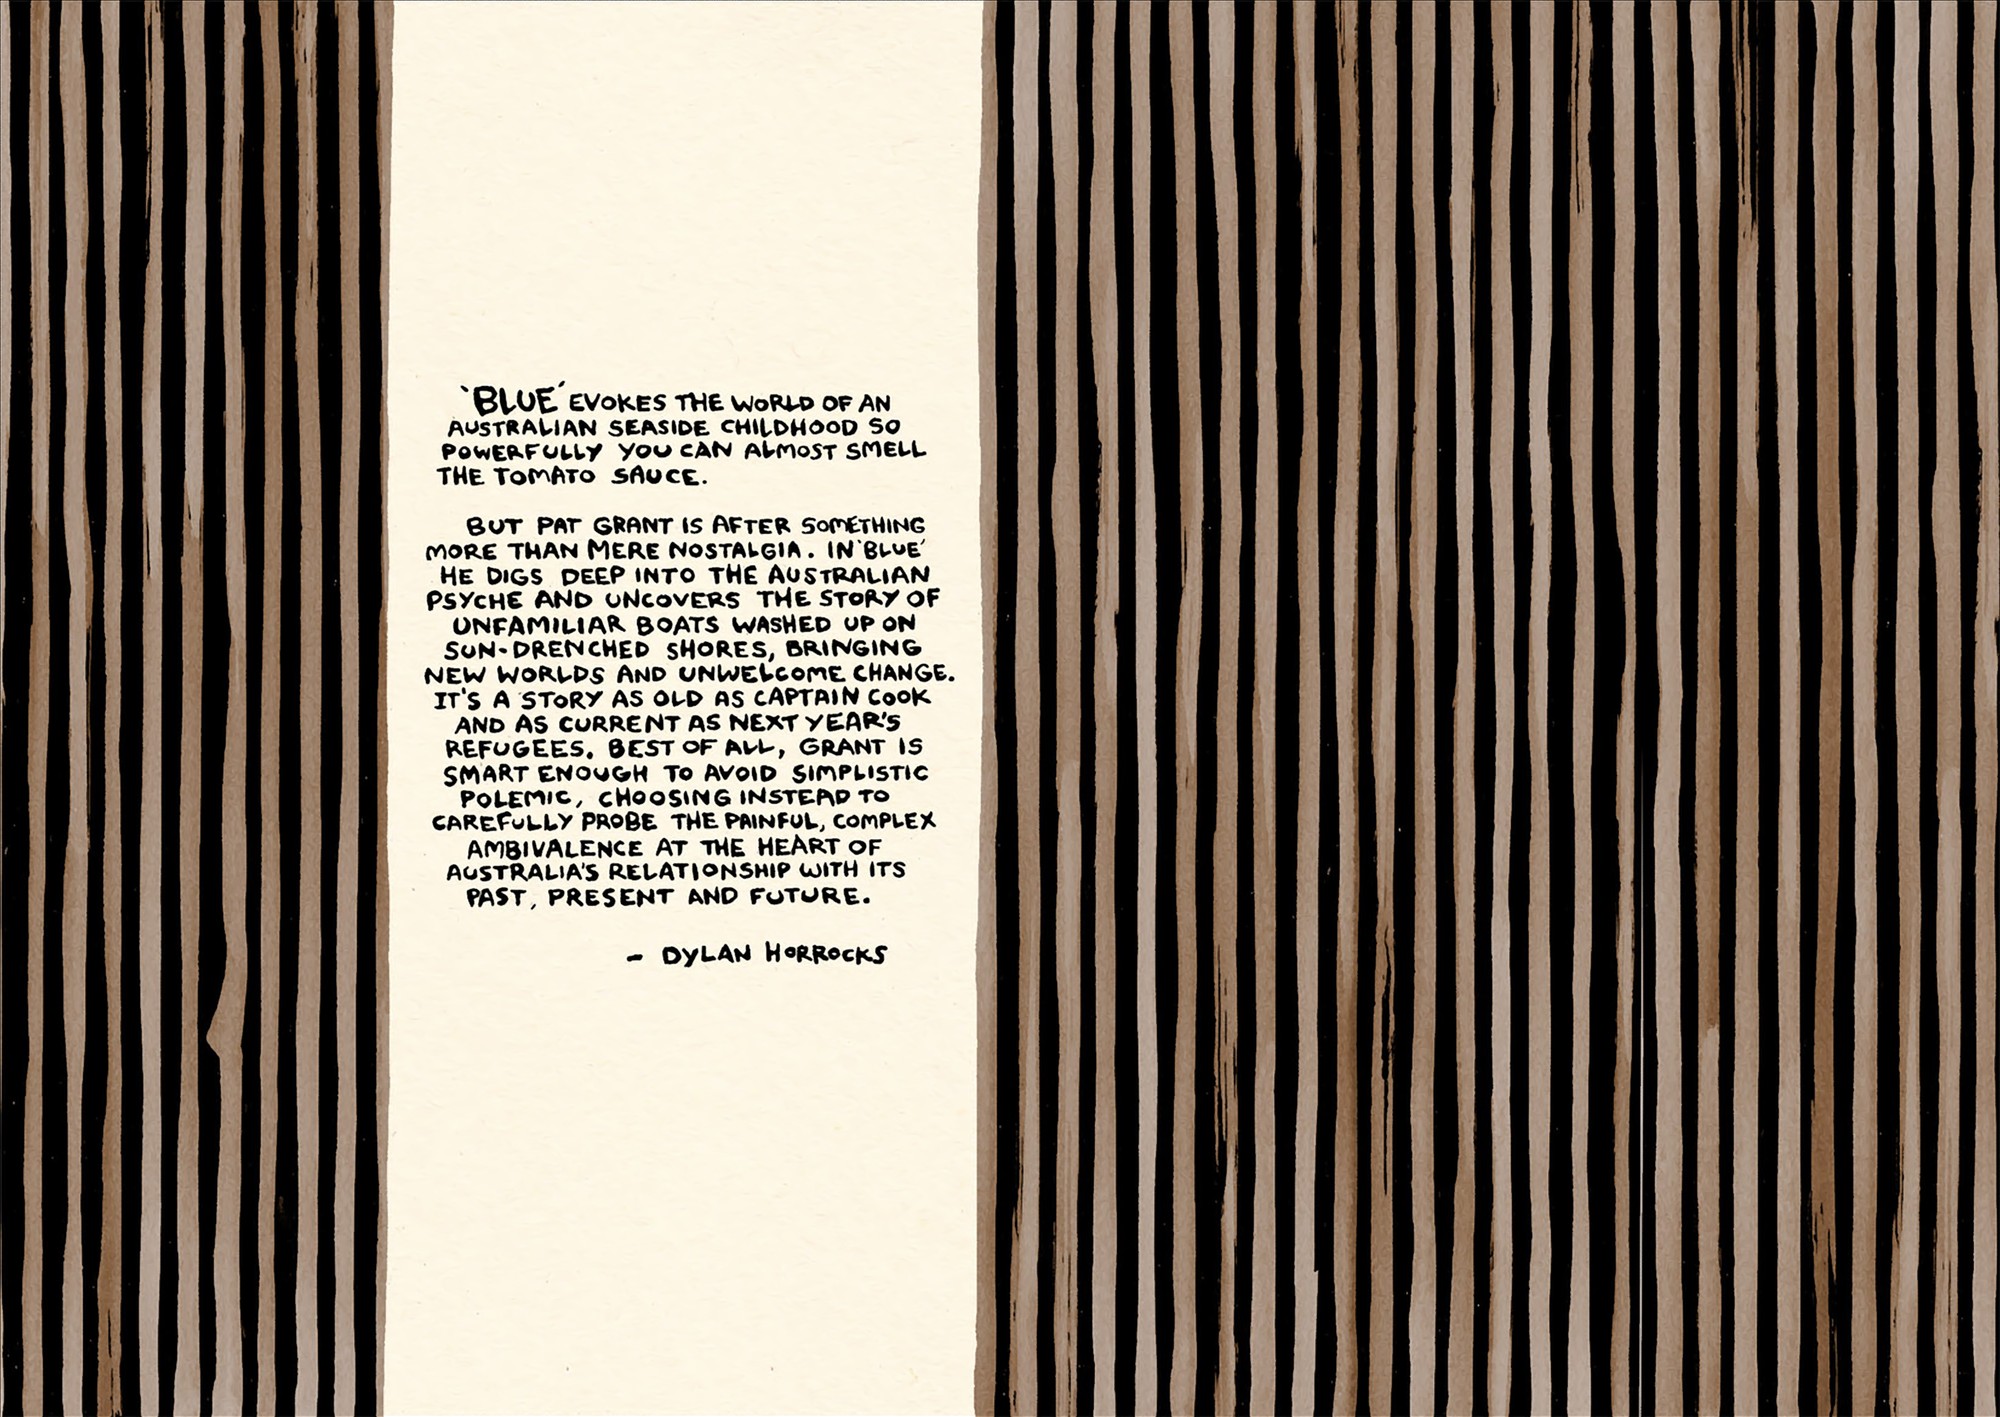 'BLUE' EVOKES THE WORLD OF AN
AUSTRALIAN SEASIDE CHILDHOOD SO
POWERFULLY YOU CAN ALMOST SMELL
THE TOMATO SAUCE.
BUT PAT GRANT IS AFTER SOMETHING
MORE THAN MERE NOSTALGIA. IN 'BLUE'
HE DIGS DEEP INTO THE AUSTRALIAN
PSYCHE AND UNCOVERS THE STORY OF
UNFAMILIAR BOATS WASHED UP ON
SUN-DRENCHED SHORES, BRINGING
NEW WORLDS AND UNWELCOME CHANGE.
IT'S A STORY AS OLD AS CAPTAIN COOK
AND AS CURRENT AS NEXT YEAR'S
REFUGEES. BEST OF ALL, GRANT IS
SMART ENOUGH TO AVOID SIMPLISTIC
POLEMIC, CHOOSING INSTEAD TO
CAREFULLY PROBE THE PAINFUL, COMPLEX
AMBIVALENCE AT THE HEART OF
AUSTRALIA'S RELATIONSHIP WITH ITS
PAST, PRESENT AND FUTURE.
- DYLAN HORROCKS